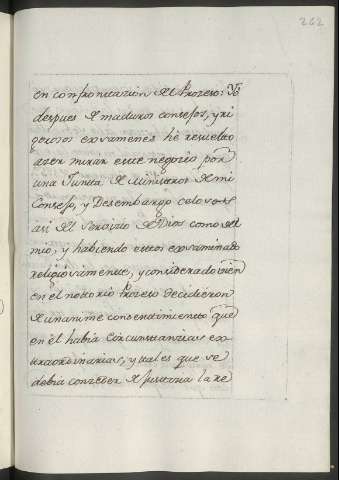 262
en confrontazion del Prozeso: Yo
despues de maduros consejos, y ri
gorosos exsamenes hé resuelto
azer mirar este negozio por
una Junta de Ministros de mi
Consejo, y Desembargo celosos
asi del Servizio de Dios como del
mio, y habiendo estos exsaminado
religiosamente, y considerado vien
en el nottorio Prozeso decidieron
de unanime consentimiento que
en él habia Circunstanzias ex-
traordinarias, y tales que se
debia conzeder de Justizia la Re